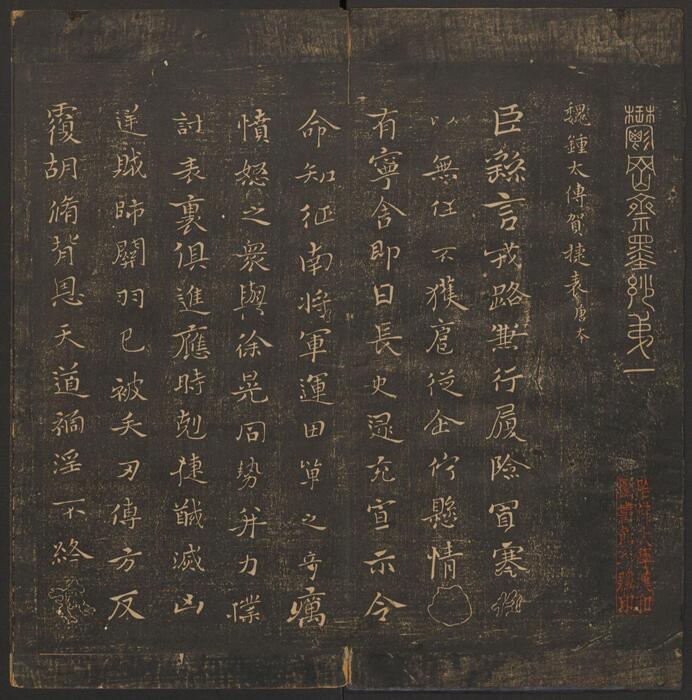 鬱岡齋墨妙第一
魏鍾太傅賀捷表唐本
臣繇言戎路兼行履險冒寒
以無任不獲扈從企佇懸情
有寧舍即日長史逯充宣示令
命知征南將軍運田單之奇厲
憤怒之衆與徐晃同勢并力撲
討表裏俱進應時剋捷馘滅凶
逆賊帥關羽已被矢刃傅方反
覆胡脩背恩天道禍淫不終